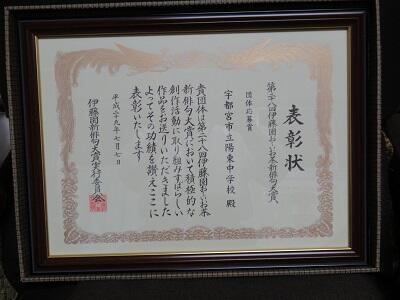 表彰状
第二十八回伊藤園お~いお茶新俳句大賞
団体応募賞
宇都宮市立陽東中学校 殿
貴団体は第二十八回伊藤園お~いお茶
新俳句大賞において積極的な
創作活動に取り組みすばらしい
作品をお送りいただきました
よってその功績を讃えここに
表彰いたします
平成二十九年七月七日
伊藤園新俳句大賞実行委員会